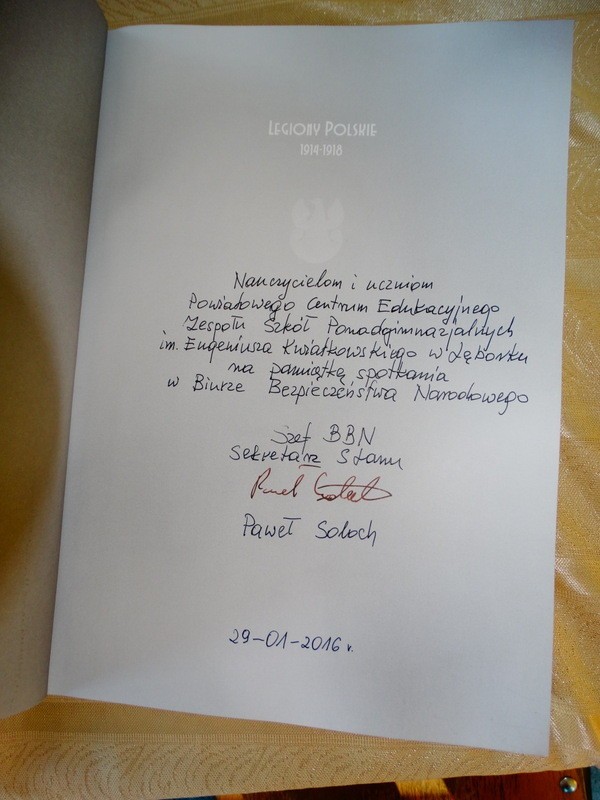 LEGIONY POLSKIE
1914-1918
Nauczycielom i uczniom
Powiatowego Centrum Edukacyjnego
Zespołu Szkół Ponadgimnazjalnych
im. Eugeniusza Kwiatkowskiego w Lęborku
na pamiątkę spotkania
w Biurze Bezpieczeństwa Narodowego
Szef BBN
Sekretarz Stanu
Paweł Soloch
Paweł Soloch
29-01-2016 r.